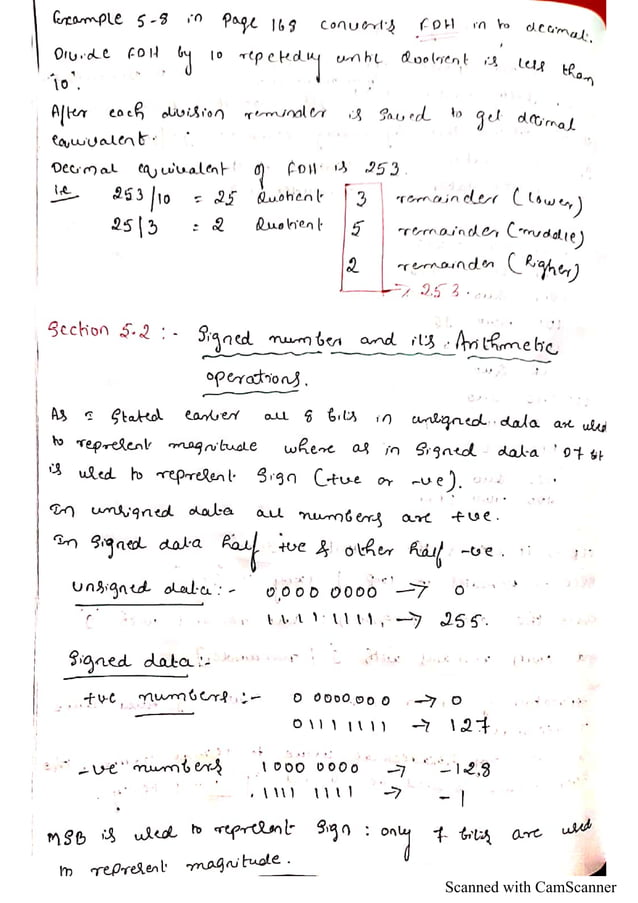 Example 5-8 in page 168 converts FDH in to decimal.
Divide FDH by 10 repetedly until Quotient is less than
'10'.
After each division reminder is saved to get decimal
equivalent.
Decimal equivalent of FDH is 253.
i.e 253/10 = 25 Quotient 3 remainder (lower)
25/3 = 2 Quotient 5 remainder (middle)
2 remainder (higher)
→ 253.
Section 5.2 :- Signed number and it's Arithmetic
operations.
As stated earlier all 8 bits in unsigned data are used
to represent magnitude where as in signed data 'D7 bit
is used to represent sign (+ve or -ve).
In unsigned data all numbers are +ve.
In signed data half +ve & other half -ve.
unsigned data:- 0000 0000 → 0
1111 1111 → 255.
Signed data:-
+ve numbers :- 0 0000000 → 0
01111111 → 127
-ve numbers 1000 0000 → -128
1111 1111 → -1
MSB is used to represent sign : only 7 bits are used
to represent magnitude.
Scanned with CamScanner